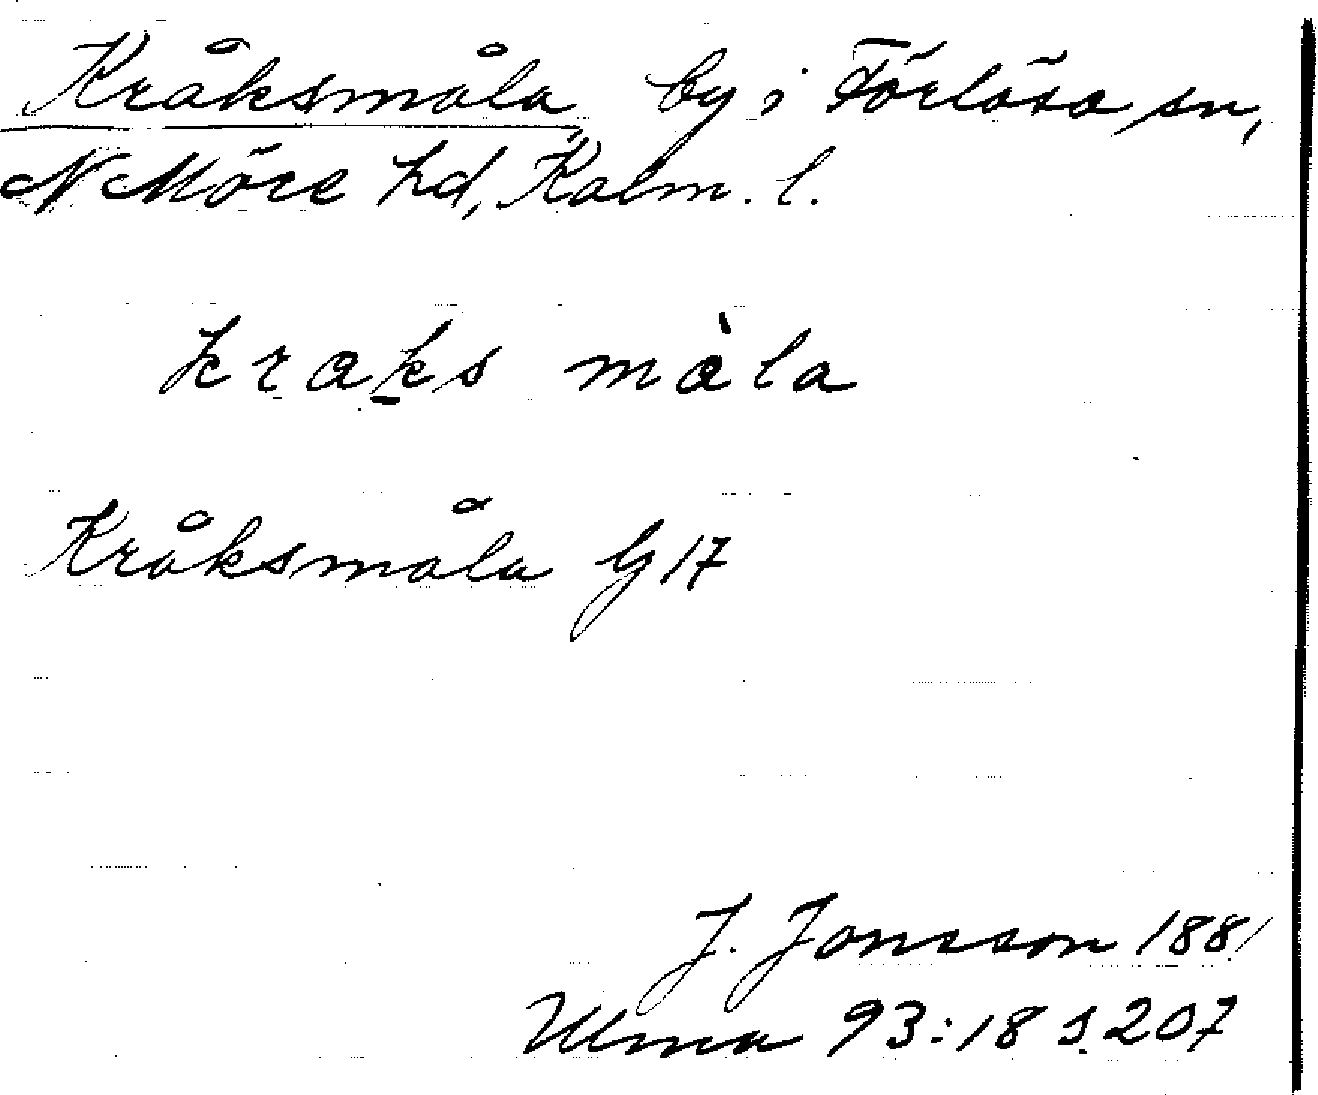 Kråksmåla by i Förlösa sn,
N Möre hd, Kalm. l.
kraks màla
Kråksmåla G 17
J. Jonsson 1881
Ulma 93:18 s. 207